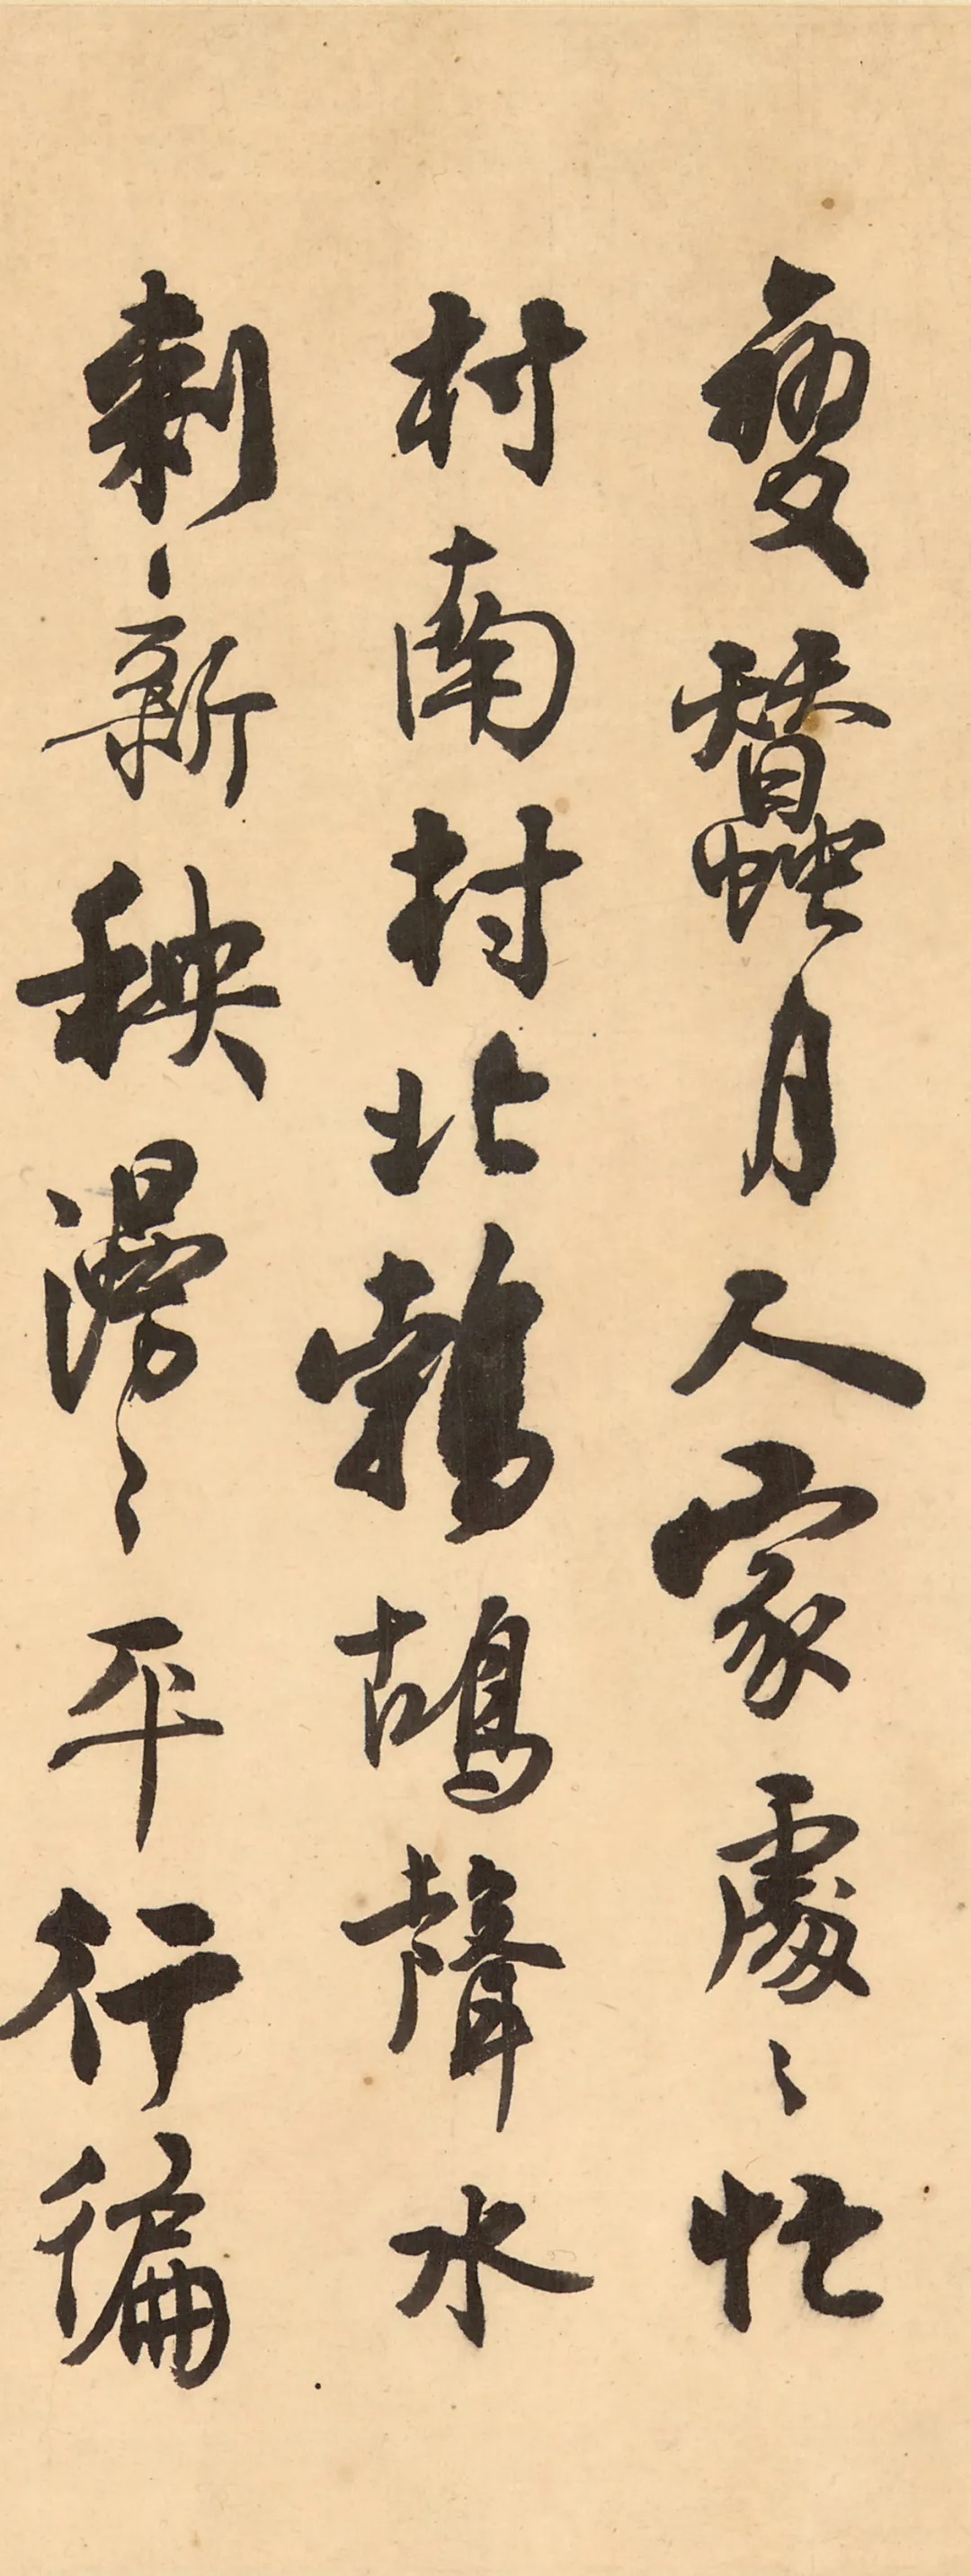 變蠶月人家處〻忙
村南村北鵓鴣聲水
刺新秧漫〻平行徧